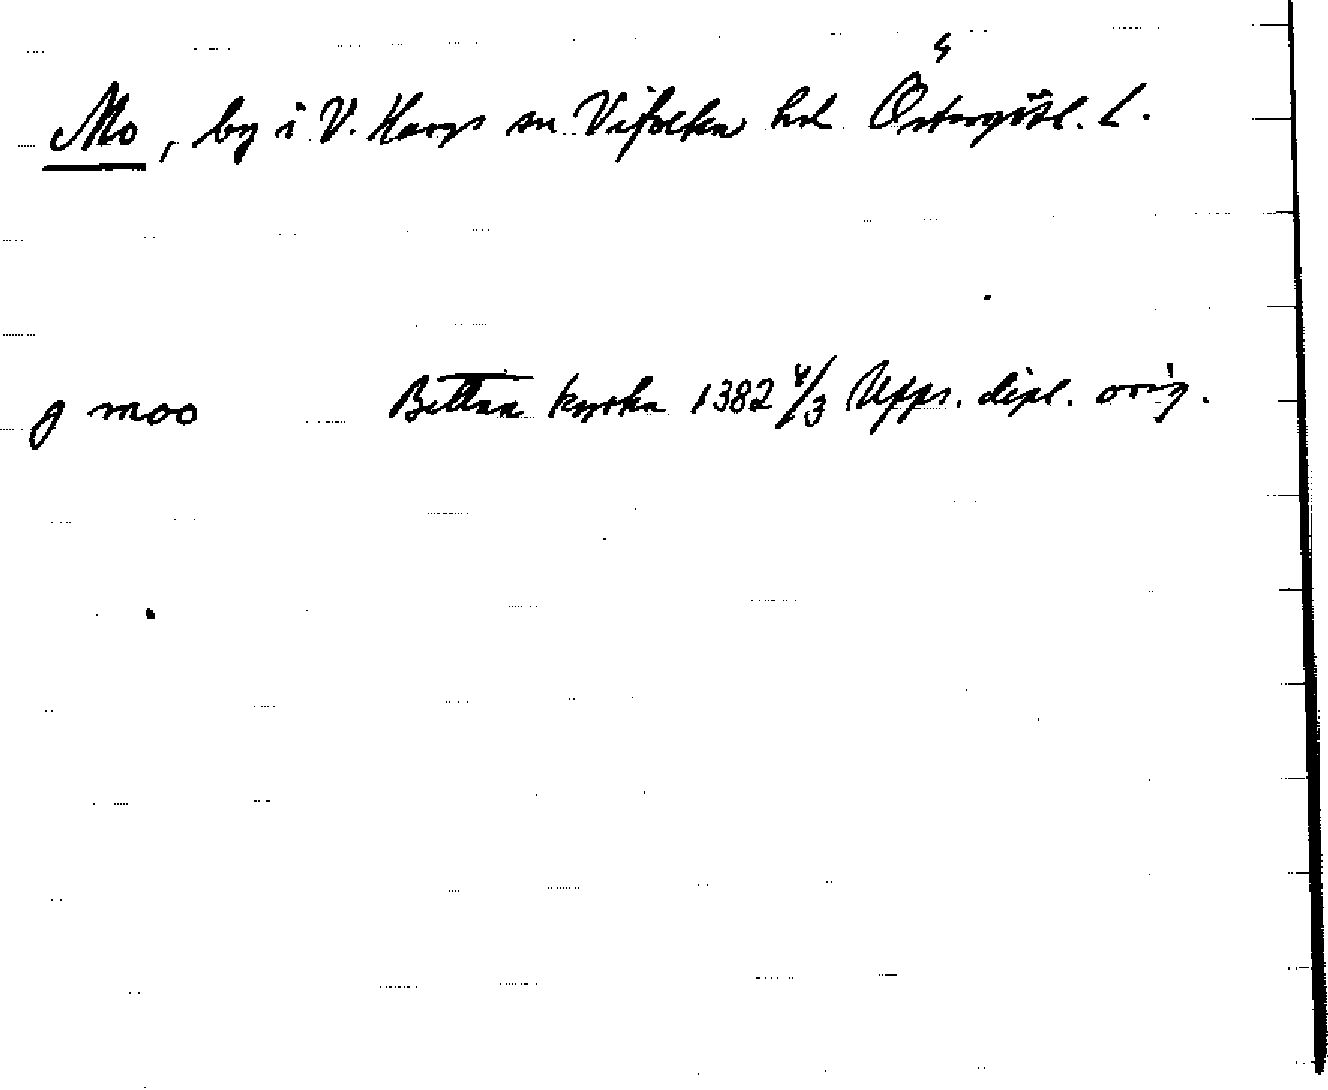 Mo, by i V. Hargs sn Vifolka hd Östergötl. L.
g moo Bettna kyrka 1382 4/3 Upps. dipl. orig.